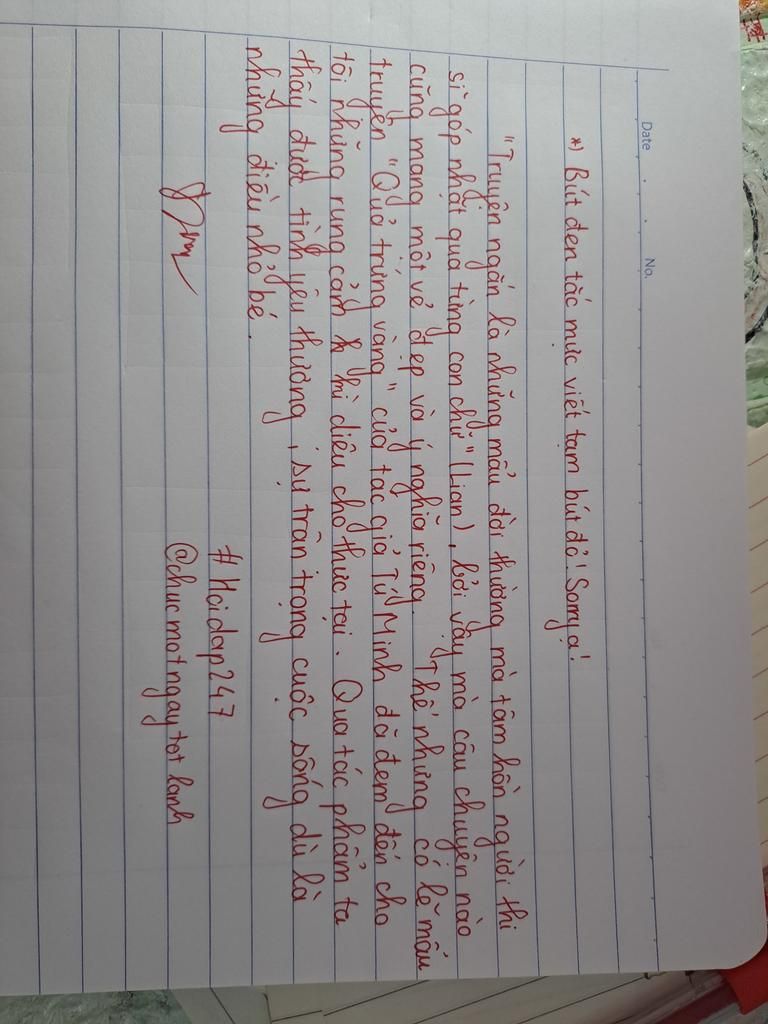 Date . . No.
*) Bút đen tắc mực viết tạm bút đỏ! Sorry ạ!
"Truyện ngắn là những mẩu đời thường mà tâm hồn người thi
sĩ góp nhặt qua từng con chữ" (Lian), bởi vậy mà câu chuyện nào
cũng mang một vẻ đẹp và ý nghĩa riêng. Thế nhưng có lẽ mẩu
truyện "Quả trứng vàng" của tác giả Tú Minh đã đem đến cho
tôi những rung cảm kì diệu cho thực tại. Qua tác phẩm ta
thấy được tình yêu thương, sự trân trọng cuộc sống dù là
những điều nhỏ bé.
#Hoidap247
@chucmotngaytotlanh